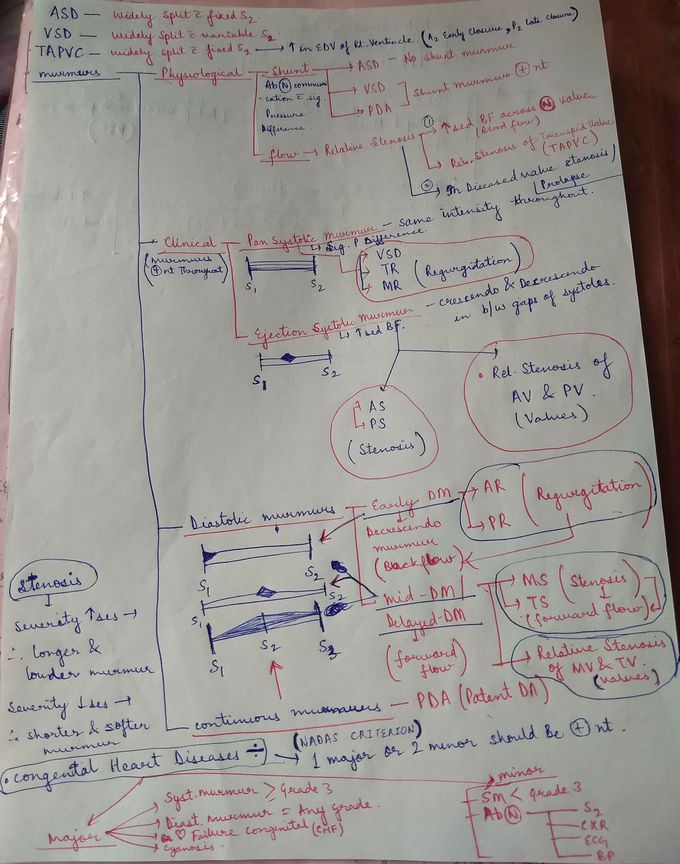 ASD — widely split c̄ fixed S2.
VSD — widely split c̄ variable S2
TAPVC — widely split c̄ fixed S2 → ↑ in EDV of Rt. Ventricle. (A2 Early closure, P2 late closure)
murmurs
Physiological
Shunt
ASD — No shunt murmur
Ab(N) communi
-cation c̄ sig.
Pressure
Difference
VSD
PDA
Shunt murmur ⊕nt
flow → Relative Stenosis
① ↑sed BF across (N) valve
(Blood flow)
Rel. Stenosis of Tricuspid Valve
(TAPVC)
② In Diseased valve stenosis/
Prolapse
Clinical
(murmurs
⊕nt Throughout)
Pan Systolic murmur — same intensity throughout.
↳ Sig. P Difference.
S1 S2
VSD
TR
MR
(Regurgitation)
Ejection Systolic murmur — crescendo & Decrescendo
in b/w gaps of systoles.
↳ ↑sed BF.
S1 S2
AS
PS
(Stenosis)
• Rel. Stenosis of
AV & PV.
(Valves)
Diastolic murmurs
Early DM
AR
PR
(Regurgitation)
Decrescendo
murmur
(Backflow)
S1 S2
S1 S2
mid-DM
Delayed-DM
(forward
flow)
MS
TS
(Stenosis)
↓
(forward flow)
→ Relative Stenosis
of MV & TV
(Valves)
S1 S2 S3
continuous murmurs — PDA (Patent DA)
Stenosis
↓
Severity ↑ses →
∴ longer &
louder murmur
Severity ↓ses →
∴ shorter & softer
murmur
• Congenital Heart Diseases ÷ → (NADAS CRITERION)
1 major or 2 minor should Be ⊕nt.
Major
Syst. murmur ≥ Grade 3
Diast. murmur = Any grade.
♡ Failure congenital (CHF)
cyanosis.
minor
SM < Grade 3
Ab(N)
S2
CXR
ECG
BP